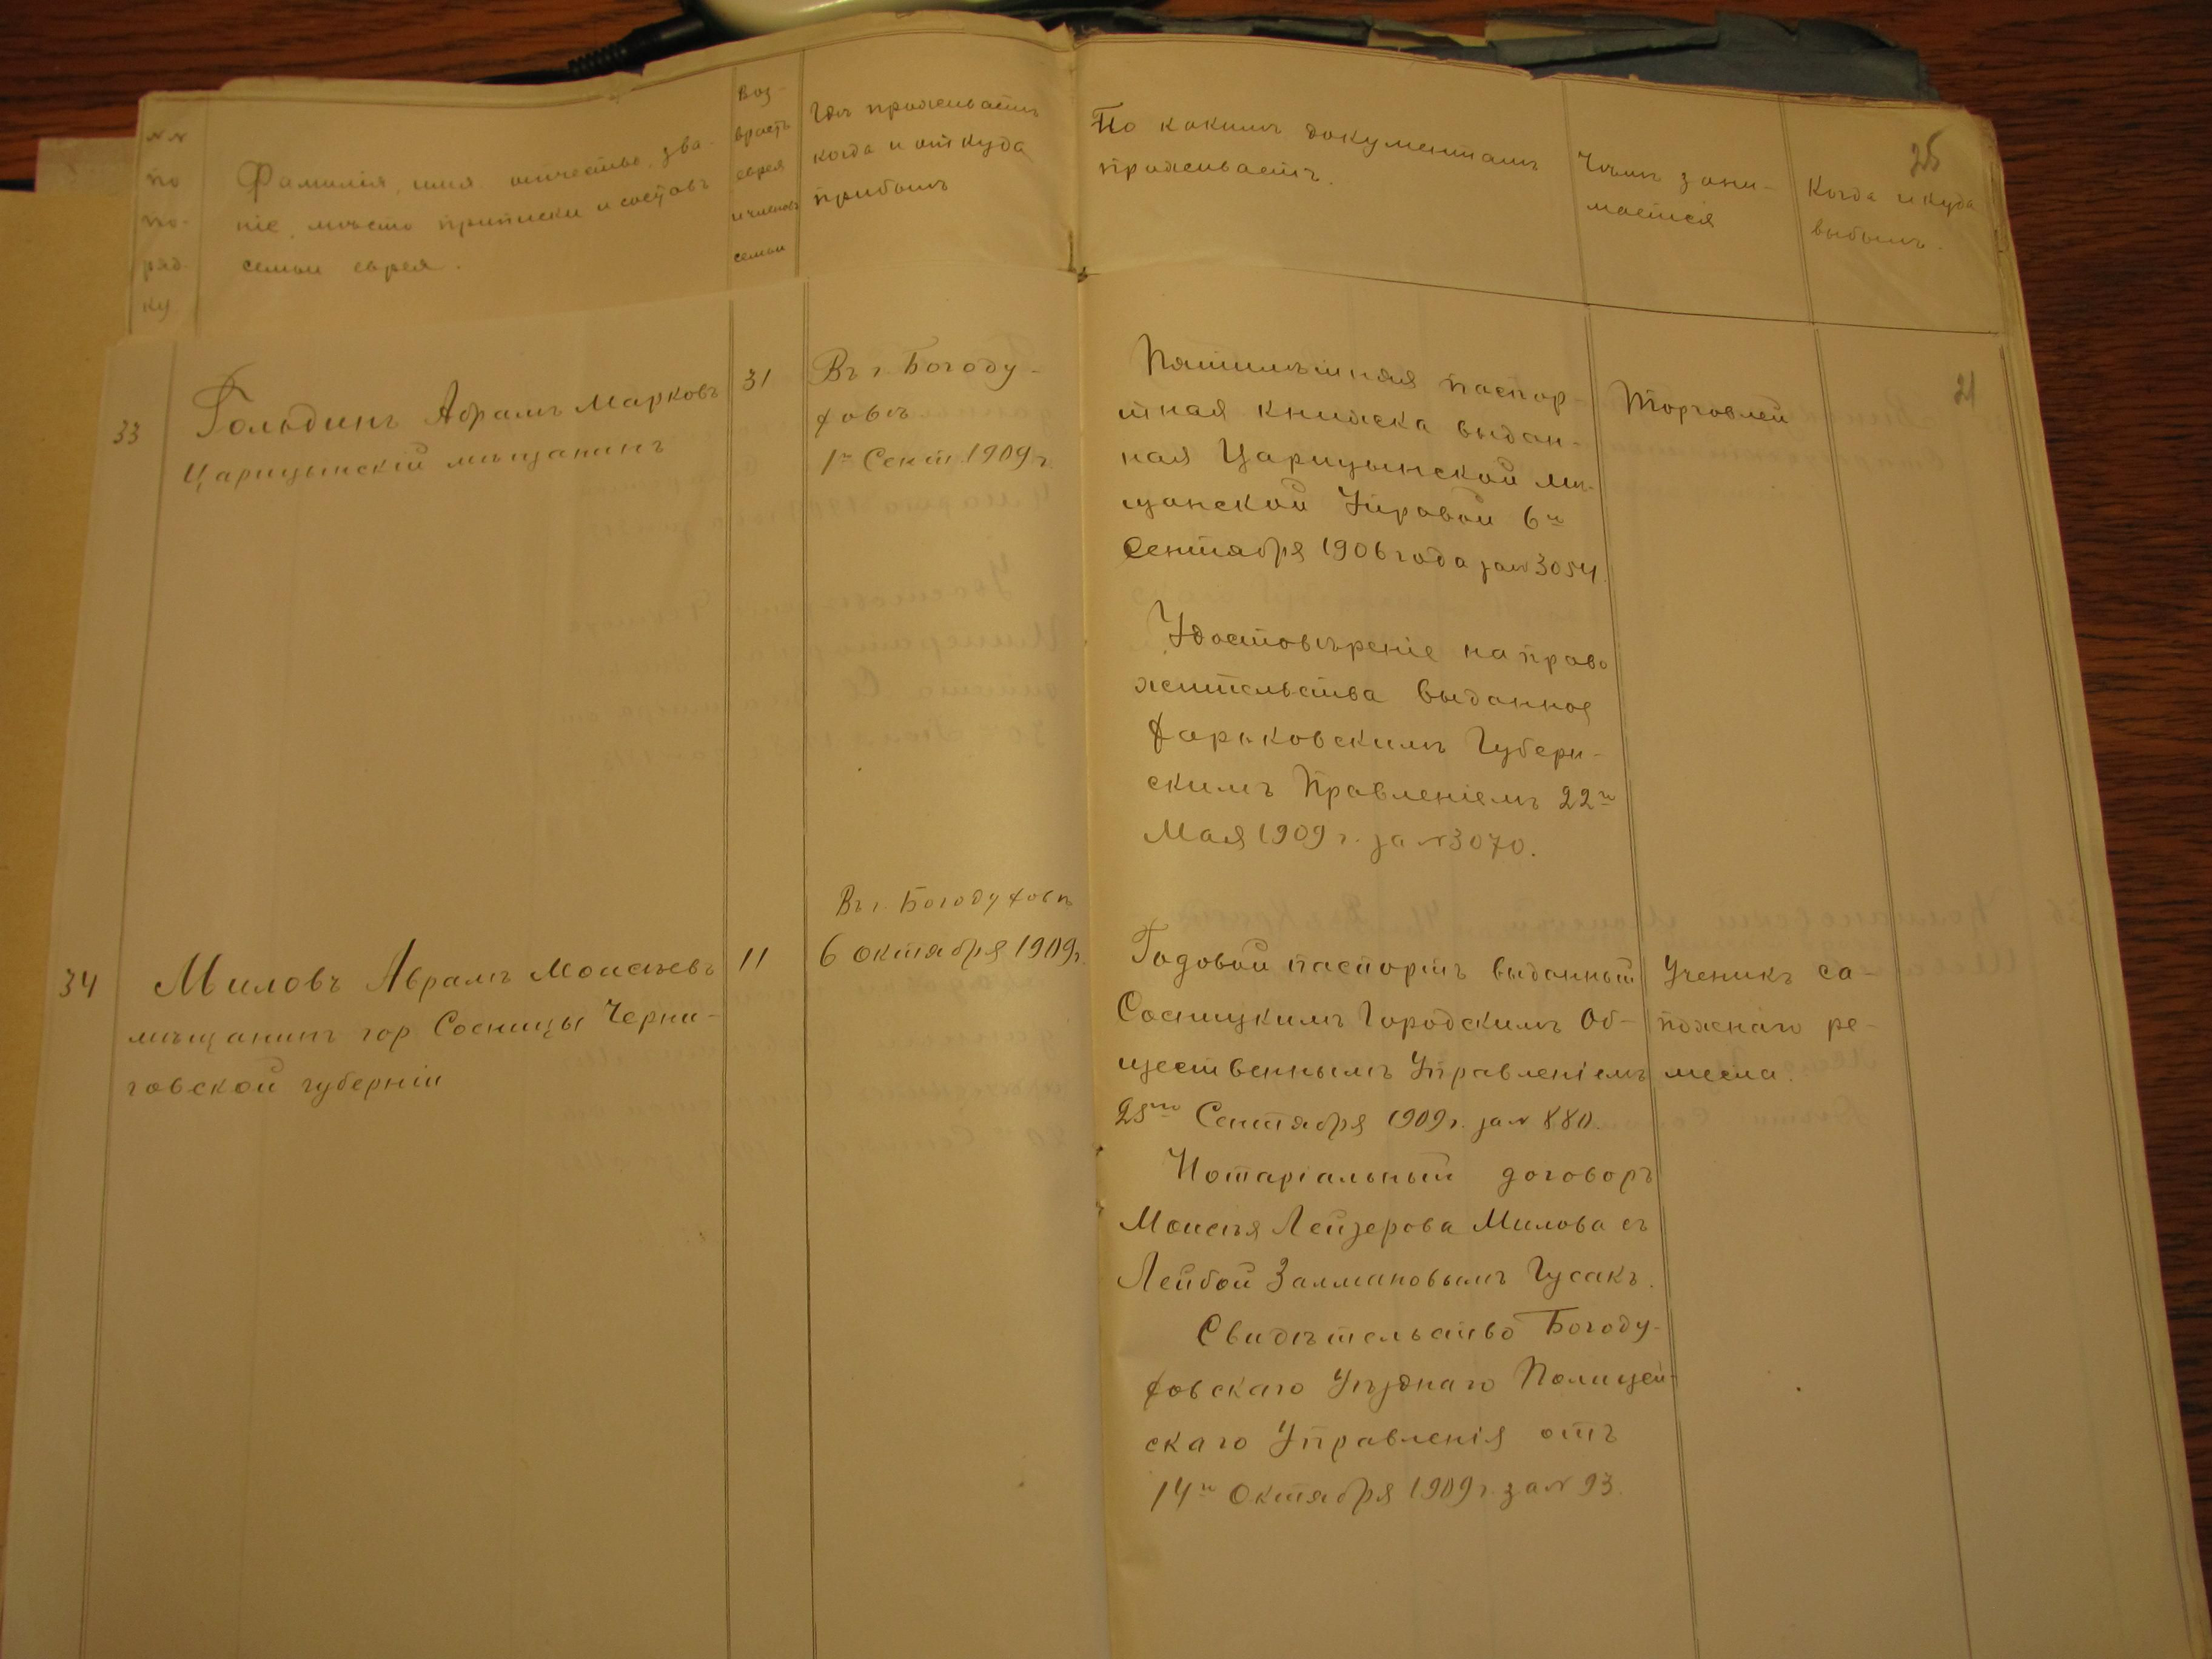 №№
по
по-
ряд-
ку
Фамилія, имя отчество, зва-
ніе, мѣсто приписки и составъ
семьи еврея.
Воз-
врастъ
еврея
и членовъ
семьи
Гдѣ проживаетъ
когда и откуда
прибылъ
По какимъ документамъ
проживаетъ.
Чѣмъ зани-
мается
Когда и куда
выбылъ.
25
33
Гольдинъ Абрамъ Марковъ
Царицынскій мѣщанинъ
31
Въ г. Богоду-
ховѣ
1го Сент. 1909 г.
Пятилѣтняя паспор-
тная книжка выдан-
ная Царицынской мѣ-
щанской Управой 6го
Сентября 1906 года за № 3054.
Удостовѣреніе на право
жительства выданное
Харьковскимъ Губерн-
скимъ Правленіемъ 22го
Мая 1909 г. за № 3070.
Торговлей
21
34
Миловъ Абрамъ Моисѣевъ
мѣщанинъ гор Сосницы Черни-
говской губерніи
11
Въ г. Богодуховѣ
6 Октября 1909 г.
Годовой паспортъ выданный
Сосницкимъ Городскимъ Об-
щественнымъ Управленіемъ
25го Сентября 1909 г. за № 880.
Нотаріальный договоръ
Моисѣя Лейзерова Милова съ
Лейбой Залмановымъ Гусакъ.
Свидѣтельство Богоду-
ховскаго Уѣзднаго Полицей-
скаго Управленія отъ
14го Октября 1909 г. за № 93.
Ученикъ са-
пожнаго ре-
месла.